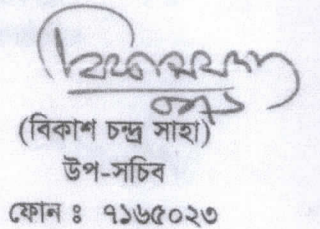 (বিকাশ চন্দ্র সাহা)
উপ-সচিব
ফোন ঃ ৭১৬৫০২৩